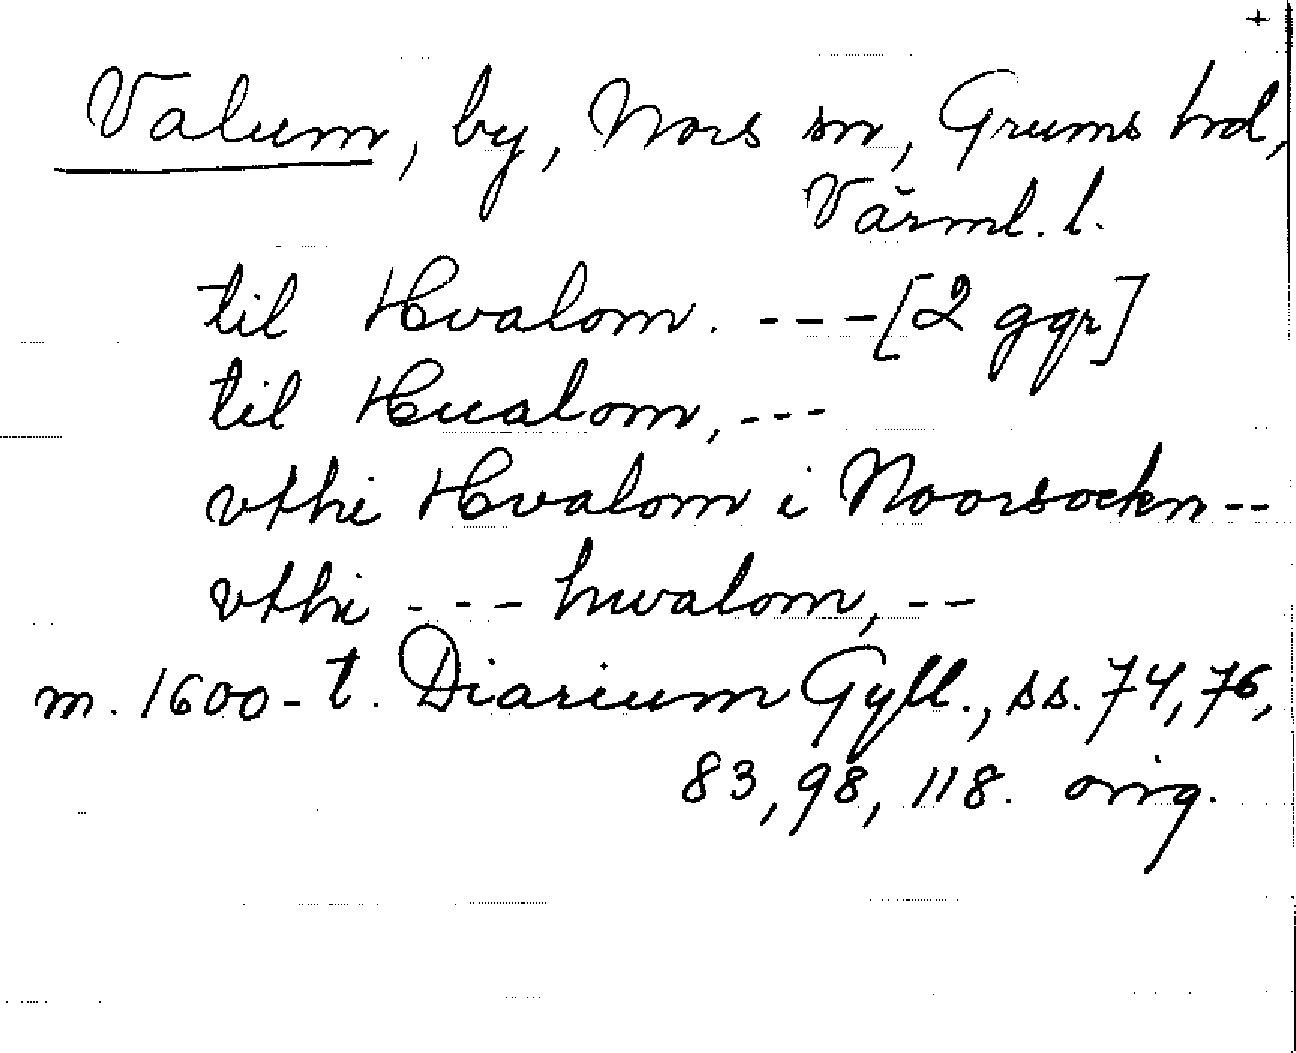 +
Valum, by, Nors sn, Grums hd,
Värml. l.
til Hvalom. --- [2 ggr]
til Hualom, ---
vthi Hvalom i Noorsockn --
vthi --- hwalom, --
m. 1600-t. Diarium Gyll., ss. 74, 76,
83, 98, 118. orig.